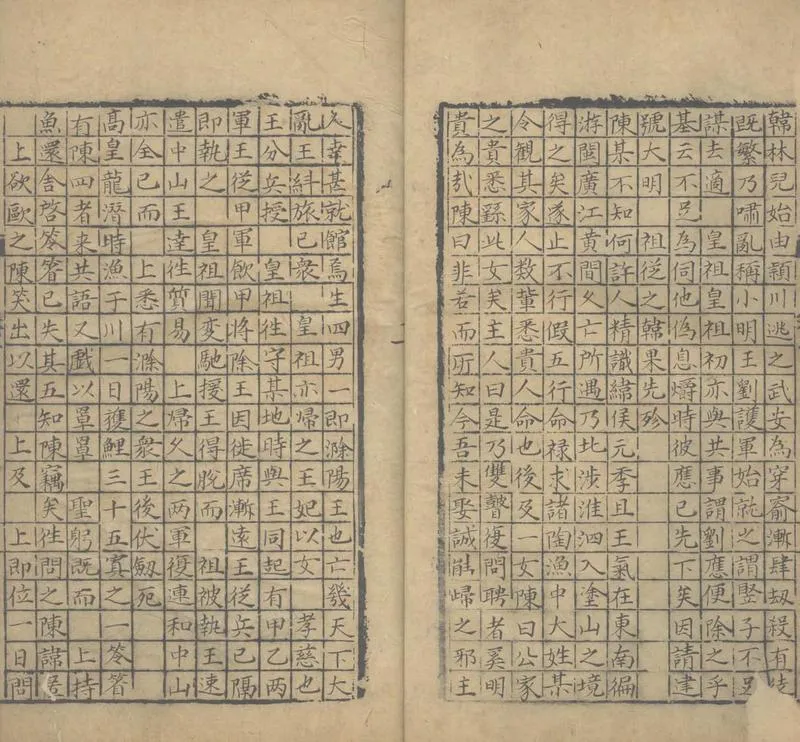 韓林兒始由穎川逃之武安為穿窬漸肆劫殺有徒
既繁乃嘯亂稱小明王劉護軍始就之謂豎子不足
謀去適 皇祖皇祖初亦與共事謂劉應便除之乎
基云不足為伺他偽息爝時彼應已先下矣因請建
號大明 祖從之韓果先殄
陳某不知何許人精識緯候元季且王氣在東南徧
游閩廣江黄間久亡所遇乃北涉淮泗入塗山之境
得之矣遂止不行假五行命禄求諸陶漁中大姓某
令觀其家人数輩悉貴人命也後及一女陳曰公家
之貴悉繇此女矣主人曰是乃雙瞽復問聘者奚明
貴為㢤陳曰非若而所知今吾未娶誠能歸之邪主
人幸甚就館焉生四男一即滁陽王也亡幾天下大
亂王糾旅已衆 皇祖亦歸之王妃以女 孝慈也
王分兵授 皇祖往守某地時與王同起有甲乙两
軍王從甲軍飲甲將除王因徙席漸遠王從兵已隔
即執之 皇祖聞變馳援王得脫而 祖被執王速
遣中山王達往質易 上歸久之两軍復連和中山
亦全已而 上悉有滁陽之衆王後伏劔死
高皇龍潛時漁于川一日獲鯉三十五寘之一笭箸
有陳四者来共語又戲以罩罩 聖躬既而 上持
魚還舍啓笭箸已失其五知陳竊矣往問之陳諱
上欲歐之陳笑出以還 上及 上即位一日問